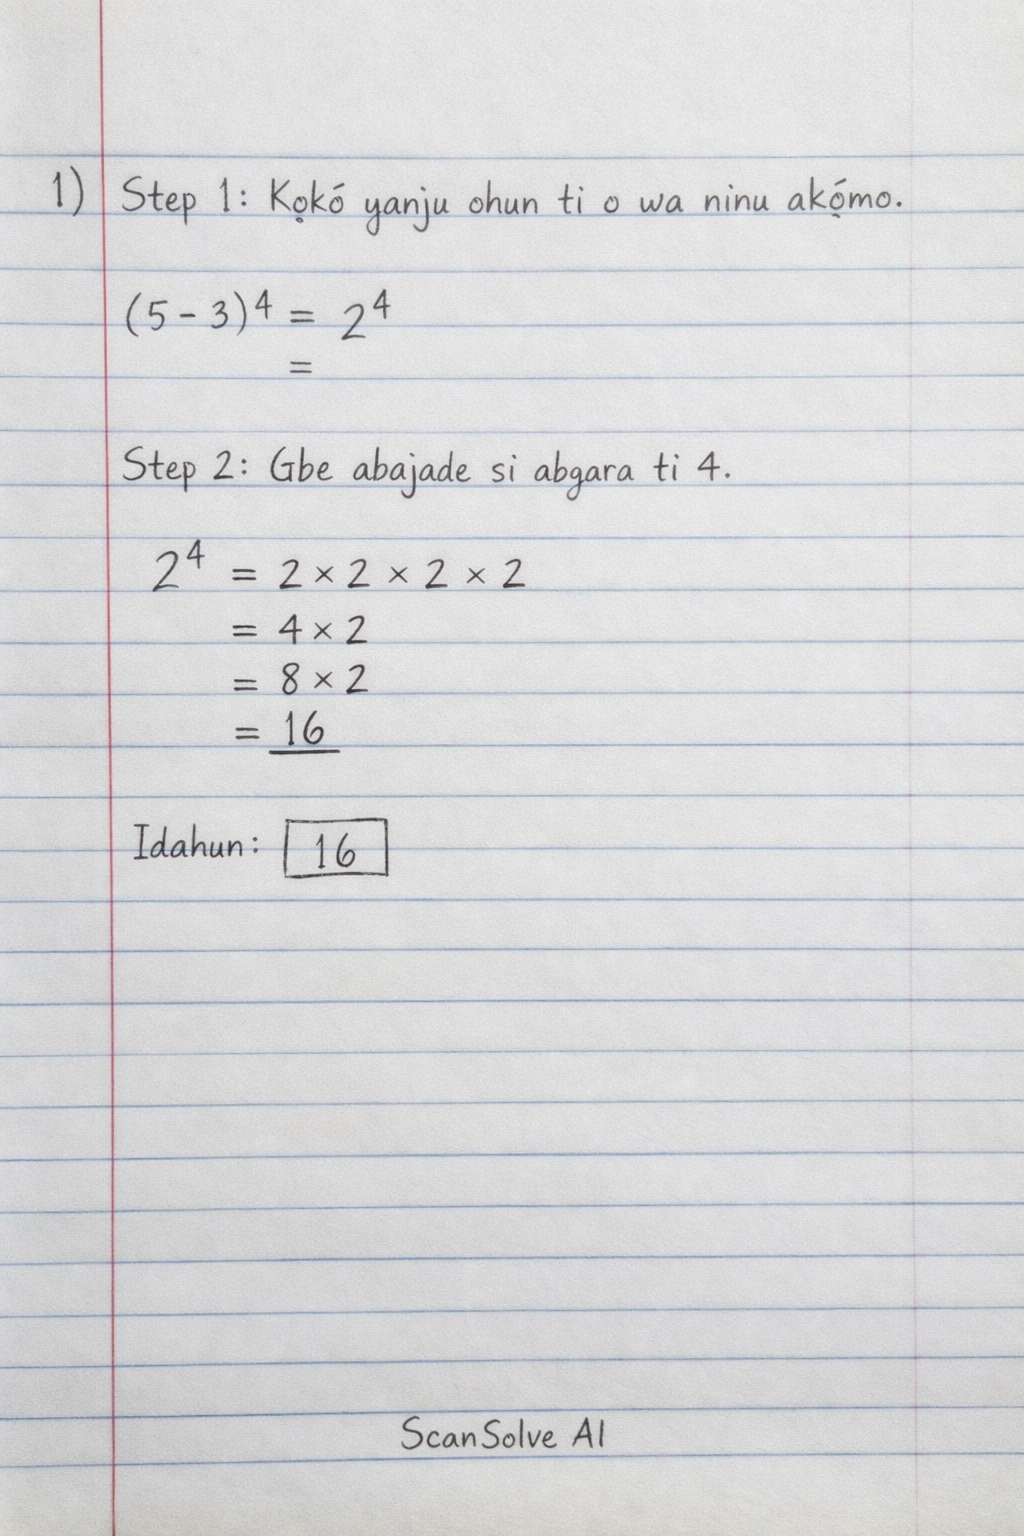 1) Step 1: Kọkó yanju ohun ti o wa ninu akọ́mo.
(5 - 3)⁴ = 2⁴
=
Step 2: Gbe abajade si abgara ti 4.
2⁴ = 2 × 2 × 2 × 2
= 4 × 2
= 8 × 2
= 16
Idahun: 16
ScanSolve AI